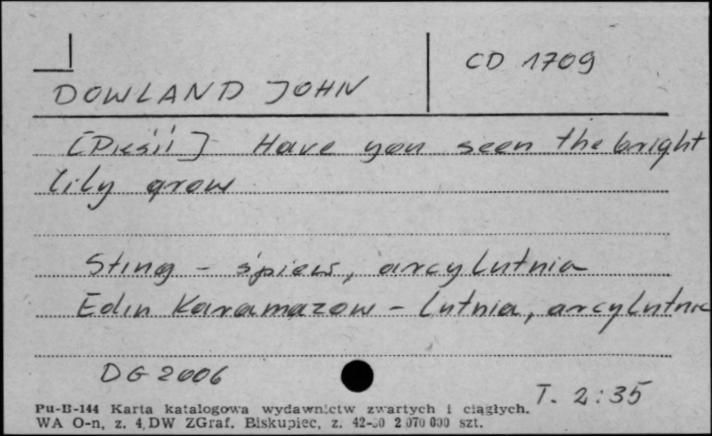 CD 1709
DOWLAND JOHN
[Pieśni] Have you seen the bright
lily grow
Sting - śpiew, arcylutnia
Edin Karamazow - lutnia, arcylutnia
DG 2006
T. 2:35
Pu-B-144 Karta katalogowa wydawnictw zwartych i ciągłych.
WA O-n, z. 4, DW ZGraf. Biskupiec, z. 42-80 2 070 000 szt.